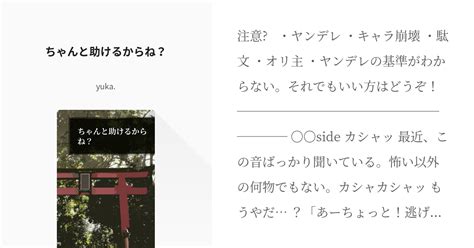 ちゃんと助けるからね？
yuka.
ちゃんと助けるから
ね？
注意?　・ヤンデレ ・キャラ崩壊 ・駄
文 ・オリ主 ・ヤンデレの基準がわか
らない。それでもいい方はどうぞ！
――――――――――――――――
―――― 〇〇side カシャッ 最近、こ
の音ばっかり聞いている。怖い以外
の何物でもない。カシャカシャッ も
うやだ… ？「あーちょっと！逃げ...